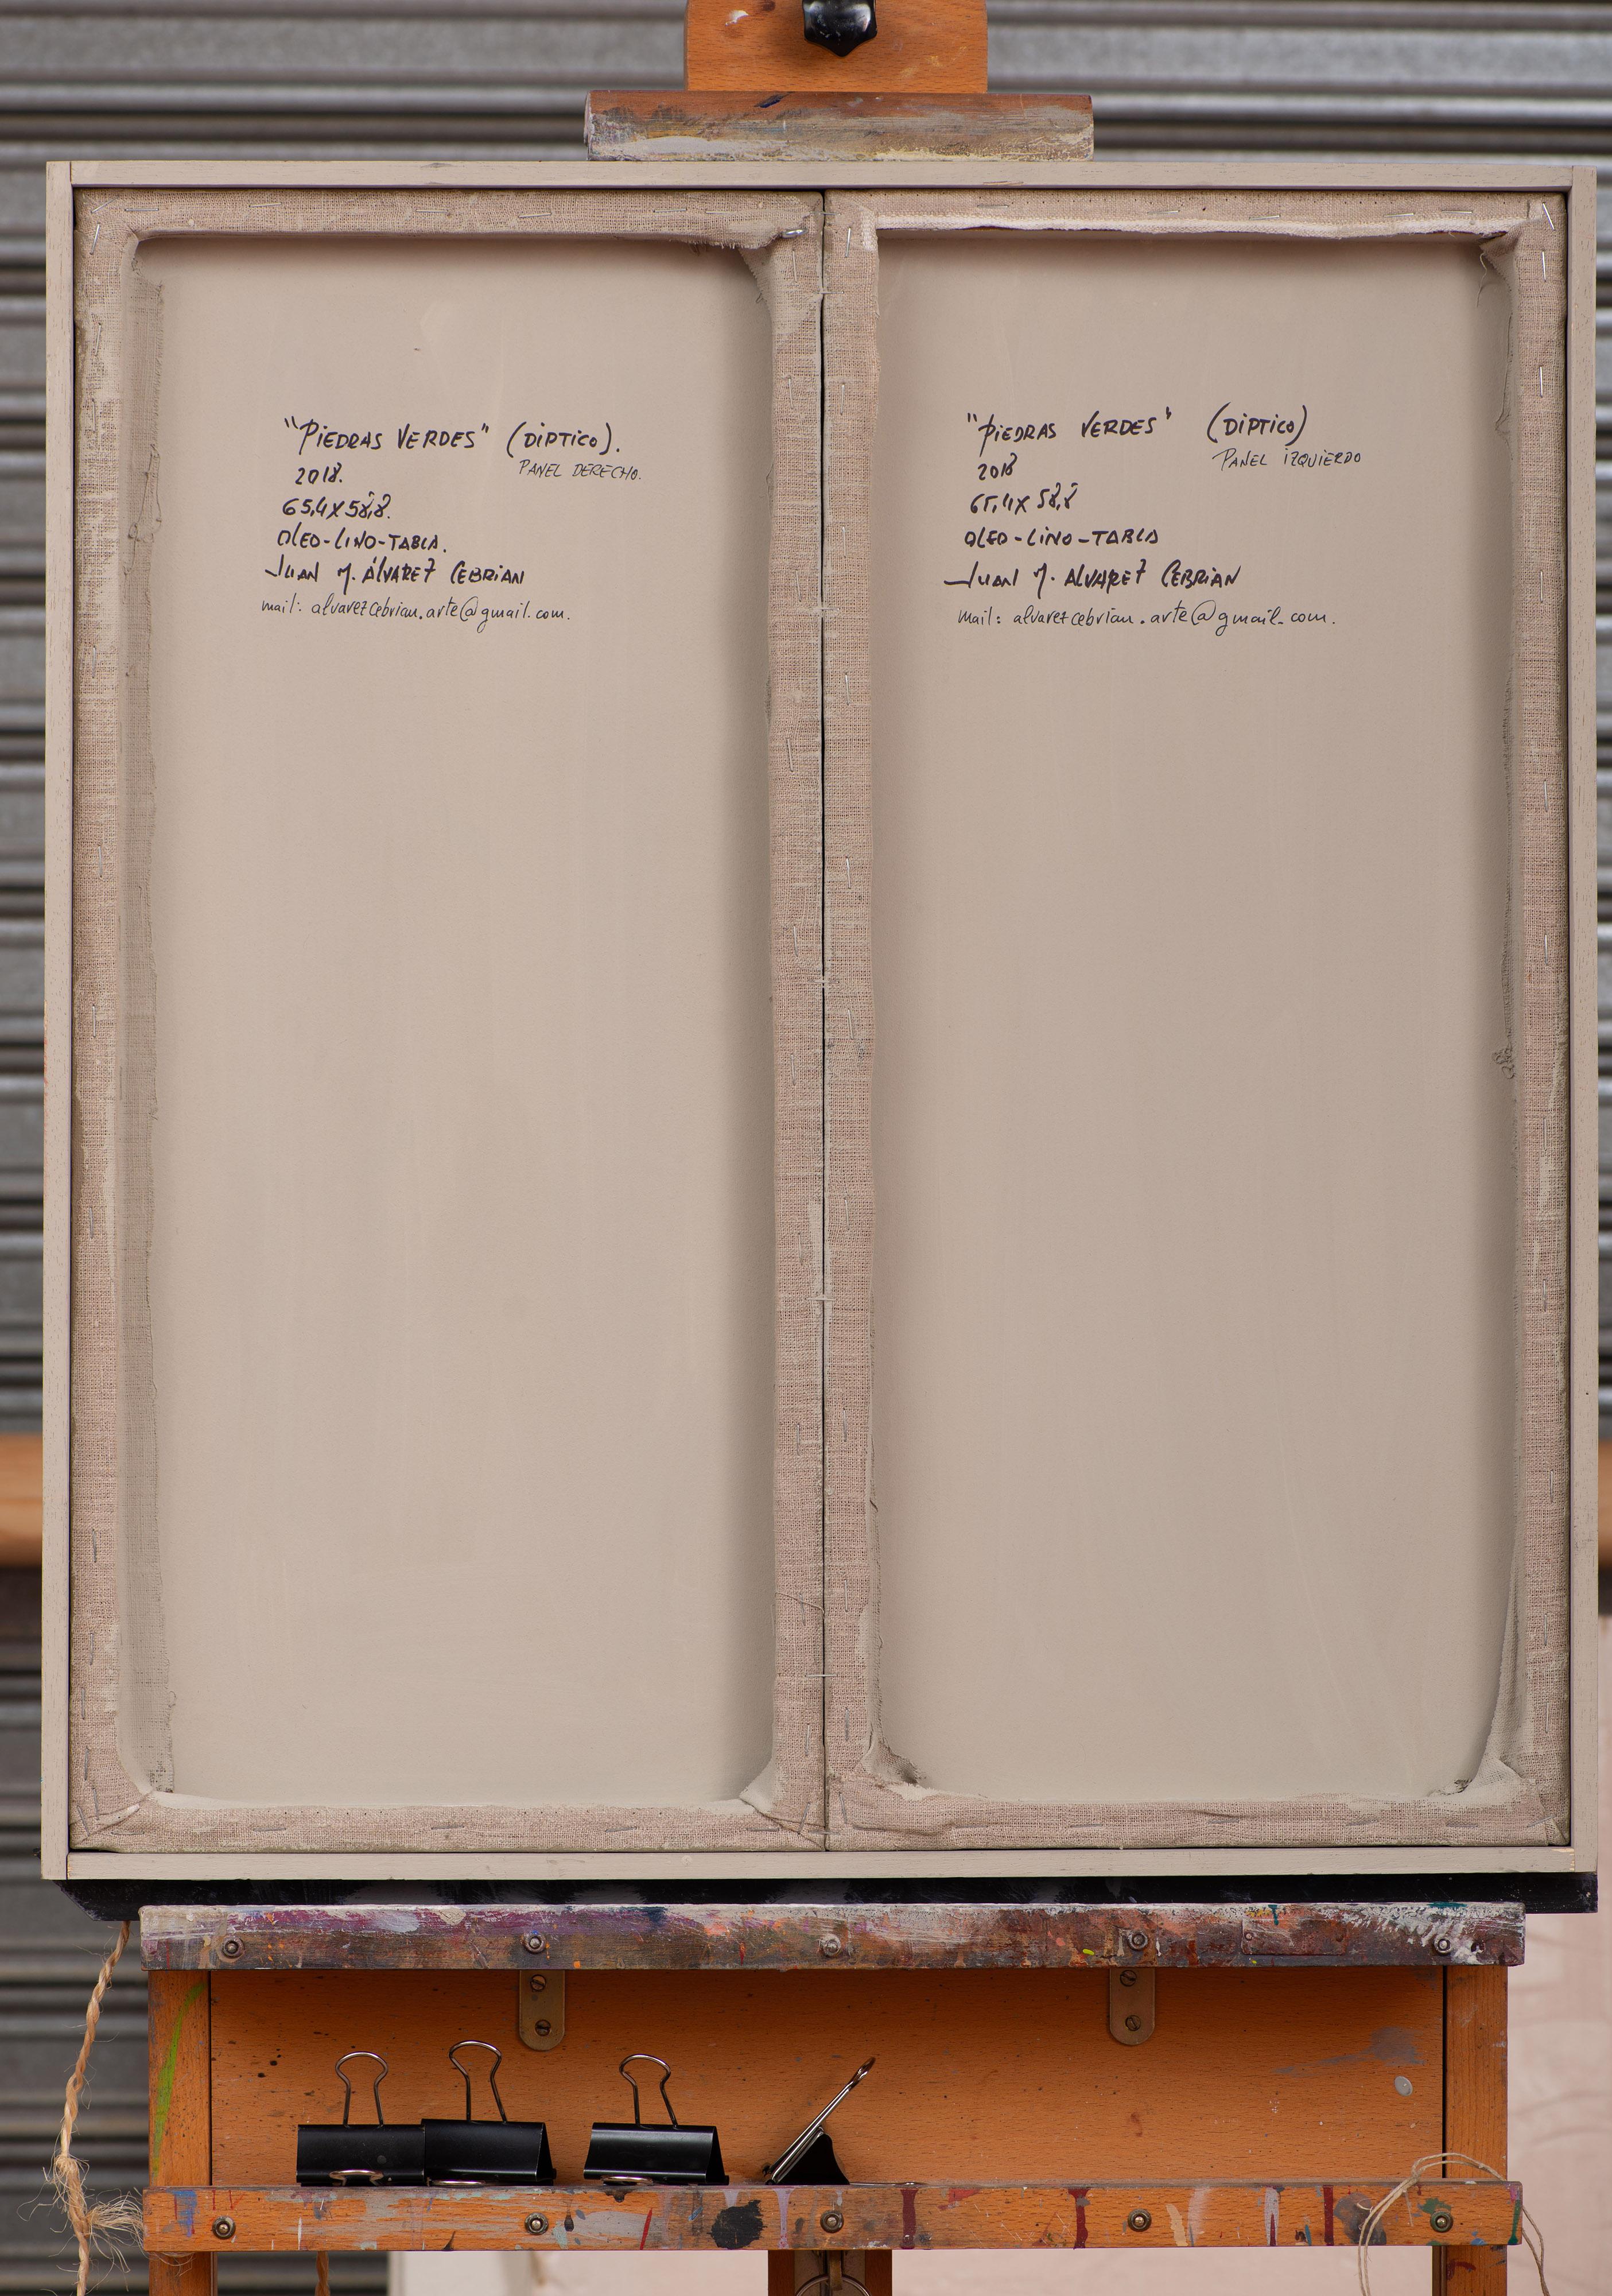 "PIEDRAS VERDES" (DÍPTICO).
PANEL DERECHO.
2018.
65,4X58,8.
OLEO-LINO-TABLA.
JUAN M. ÁLVAREZ CEBRIAN
mail: alvarezcebrian.arte@gmail.com.
"PIEDRAS VERDES" (DÍPTICO)
PANEL IZQUIERDO
2018
65,4X58,8
OLEO-LINO-TABLA
JUAN M. ALVAREZ CEBRIAN
mail: alvarezcebrian.arte@gmail.com.